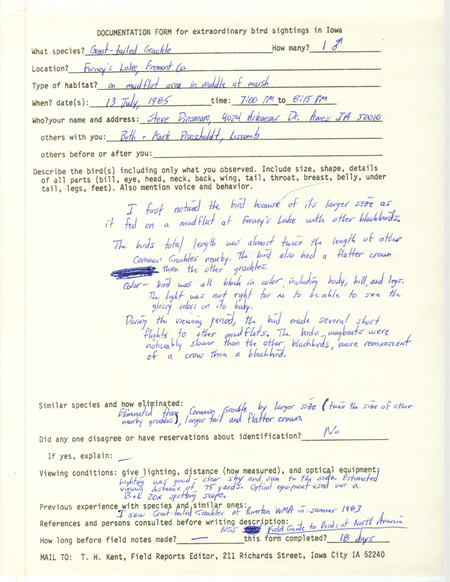 DOCUMENTATION FORM for extraordinary bird sightings in Iowa
What species? Great-tailed Grackle How many? 1 ♂
Location? Forney's Lake, Fremont Co.
Type of habitat? on mudflat area in middle of marsh
When? date(s): 13 July, 1985 time: 7:00 PM to 8:15 PM
Who?your name and address: Steve Dinsmore, 4024 Arkansas Dr. Ames IA 50010
others with you: Beth + Mark Proescholdt, Liscomb
others before or after you:
Describe the bird(s) including only what you observed. Include size, shape, details
of all parts (bill, eye, head, neck, back, wing, tail, throat, breast, belly, under
tail, legs, feet). Also mention voice and behavior.
I first noticed the bird because of its larger size as
it fed on a mudflat at Forney's Lake with other blackbirds.
The birds total length was almost twice the length of other
Common Grackles nearby. The bird also had a flatter crown
than the other grackles.
Color - bird was all black in color, including body, bill, and legs.
The light was not right for me to be able to see the
glossy colors on its body.
During the viewing period, the bird made several short
flights to other mudflats. The birds wingbeats were
noticably slower than the other blackbirds, more reminiscent
of a crow than a blackbird.
Similar species and how eliminated:
Eliminated from Common Grackle by larger size (twice the size of other
nearby grackles), larger tail and flatter crown.
Did any one disagree or have reservations about identification? No
If yes, explain: —
Viewing conditions: give lighting, distance (how measured), and optical equipment:
Lighting was good - clear sky and sun to the side. Estimated
viewing distance of 75 yards. Optical equipment used was a
B+L 20x spotting scope.
Previous experience with species and similar ones:
I saw Great-tailed Grackles at Riverton WMA in summer 1983
References and persons consulted before writing description:
NGS Field Guide to Birds of North America
How long before field notes made? — this form completed? 18 days
MAIL TO: T. H. Kent, Field Reports Editor, 211 Richards Street, Iowa City IA 52240